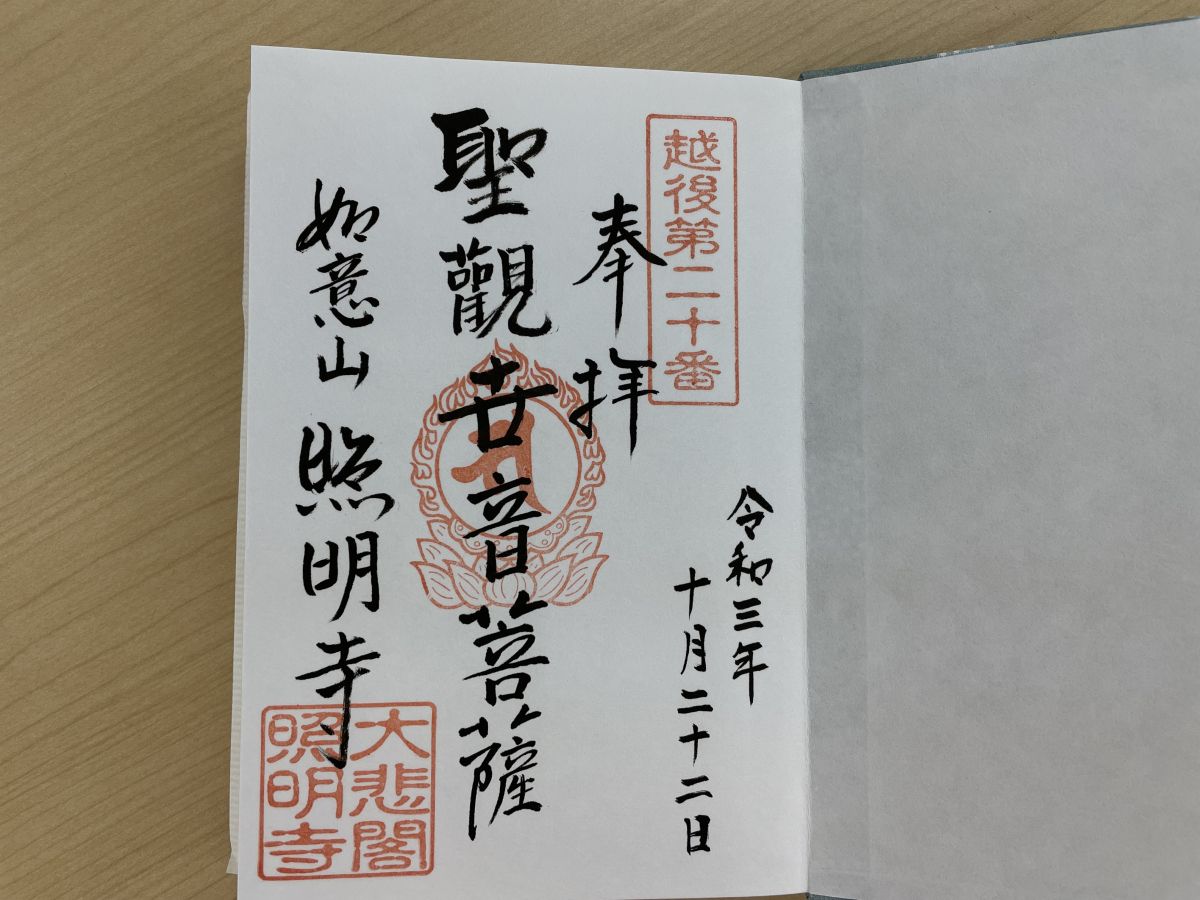 越後第二十番
奉拝
令和三年
十月二十二日
聖觀世音菩薩
如意山 照明寺
大悲閣
照明寺